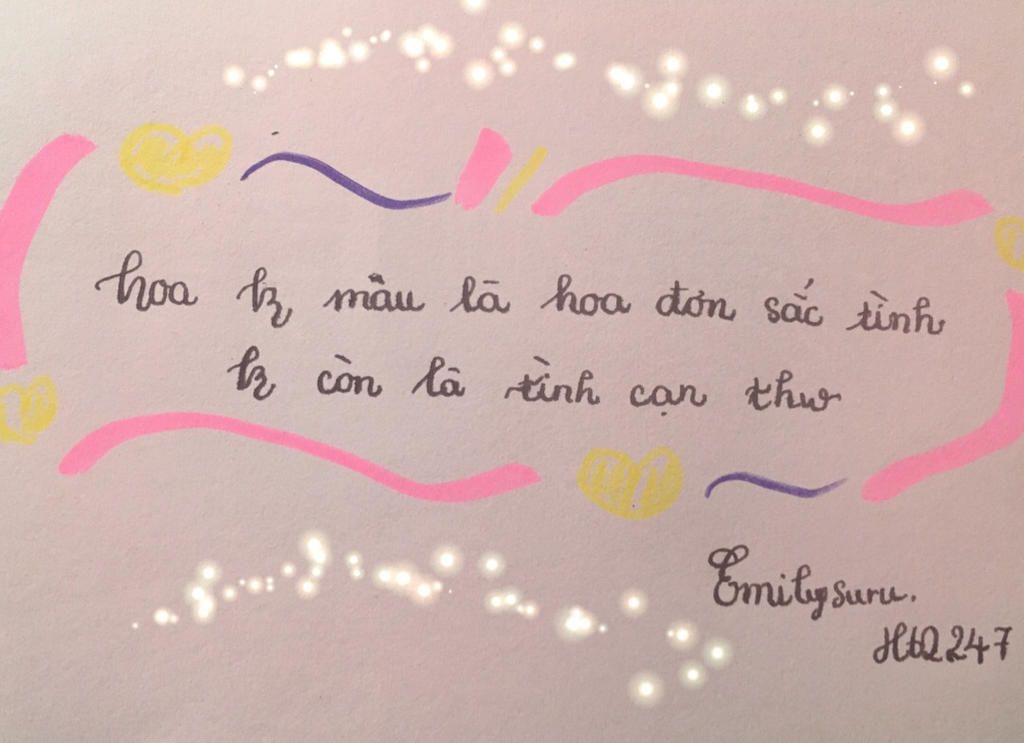 hoa kz mầu là hoa đơn sắc tình
kz còn là tình cạn thư
Emilysuru.
HtQ247